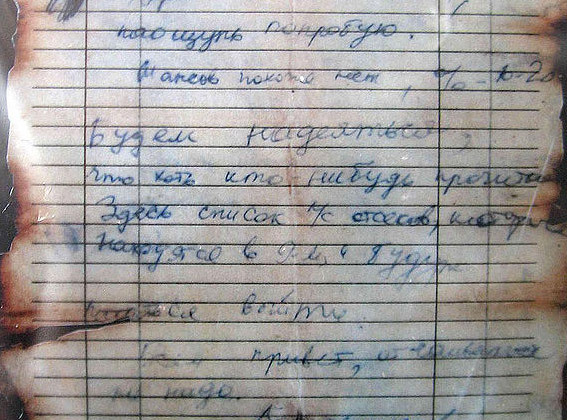 наощупь попробую.
Шансов похоже нет, % – 10-20.
Будем надеяться,
что хоть кто-нибудь прочитает
Здесь список л/с отсеков, которые
находятся в 9-м, и будут
пытаться выйти.
Всем привет, отчаиваться
не надо.